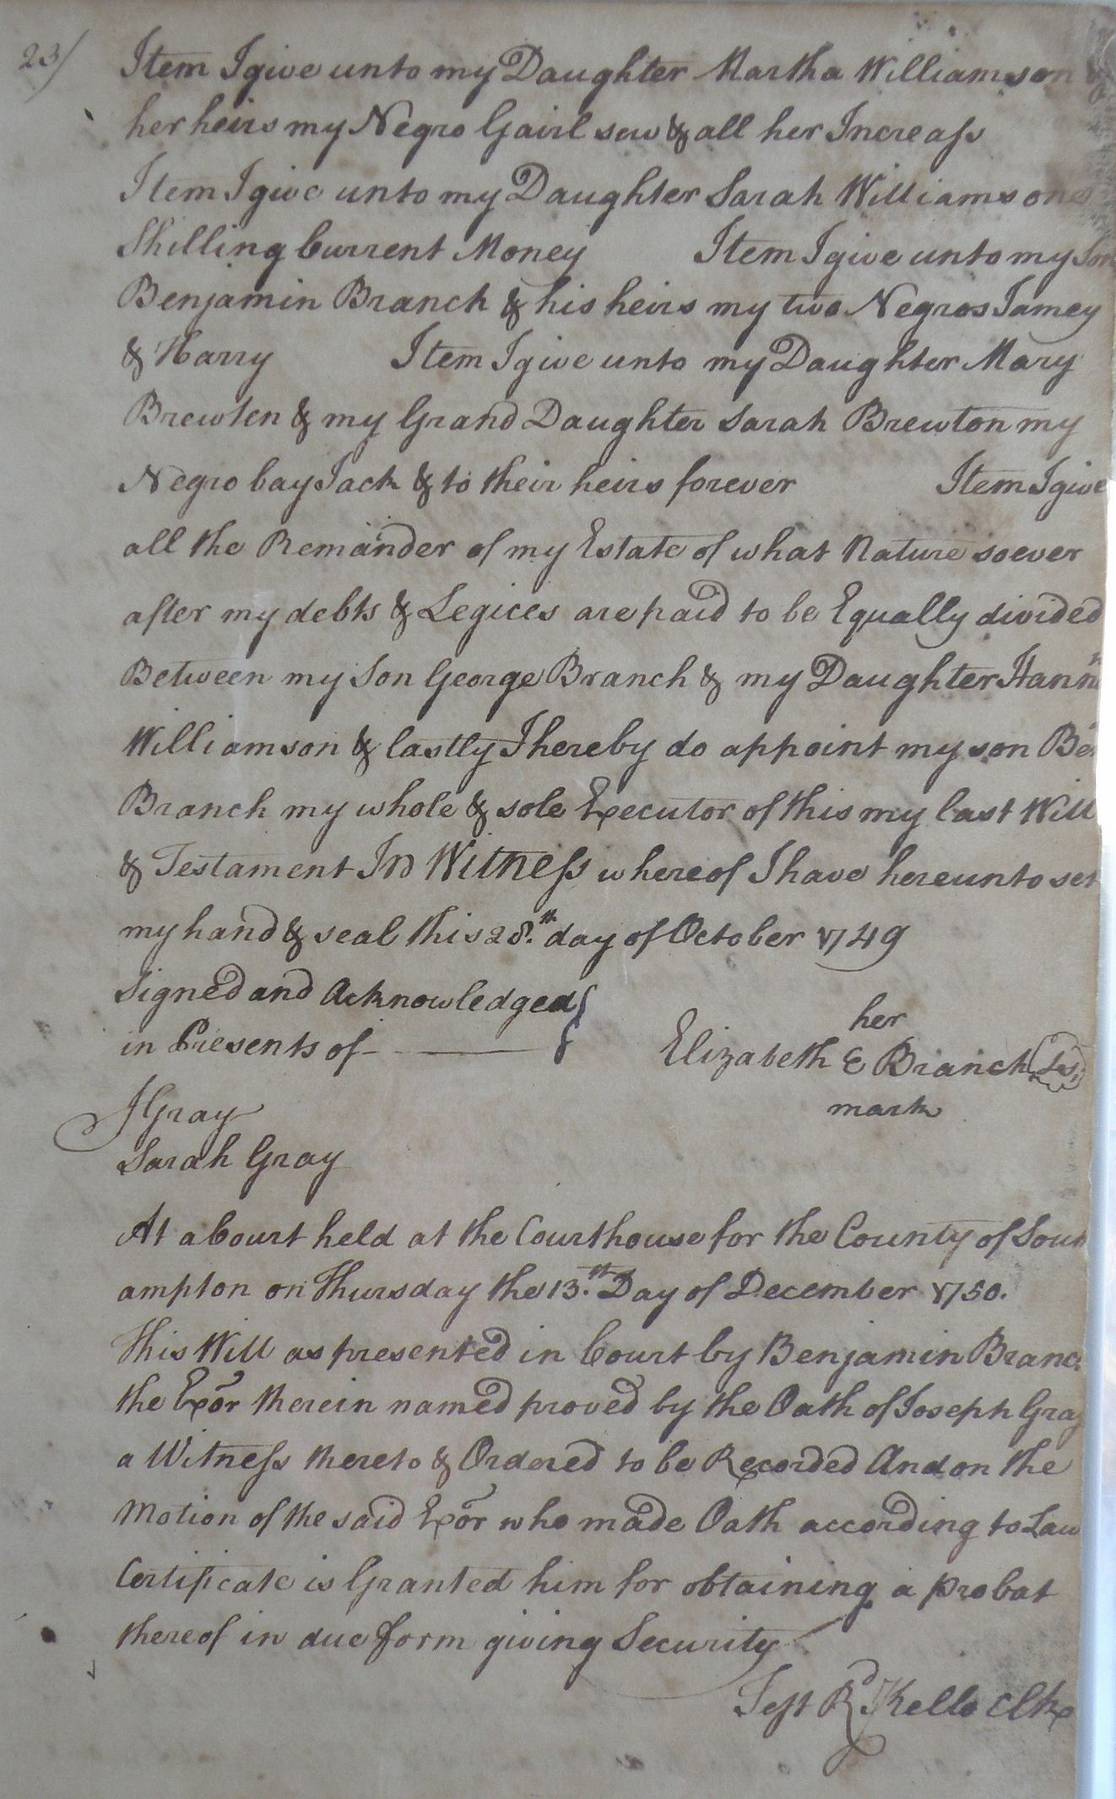 23/
Item I give unto my Daughter Martha Williamson
her heirs my Negro Gairl sew & all her Increass
Item I give unto my Daughter Sarah Williams one
Shilling Current Money Item I give unto my Son
Benjamin Branch & his heirs my two Negros Jamey
& Harry Item I give unto my Daughter Mary
Brewten & my Grand Daughter Sarah Brewton my
Negro bay Jack & to their heirs forever Item I give
all the Remainder of my Estate of what Nature soever
after my debts & Legices are paid to be Equally divided
Between my Son George Branch & my Daughter Hann
Williamson & lastly I hereby do appoint my son Be
Branch my whole & sole Executor of this my last Will
& Testament In Witness whereof I have hereunto set
my hand & seal this 28.th day of October 1749
Signed and Acknowledged
in Presents of
her
Elizabeth E Branch Ls.
mark
J Gray
Sarah Gray
At a Court held at the Courthouse for the County of South
ampton on Thursday the 13.th Day of December 1750.
This Will as presented in Court by Benjamin Branc
the Exor therein named proved by the Oath of Joseph Gray
a Witness thereto & Ordered to be Recorded And on the
Motion of the said Exor who made Oath according to Law
Certificate is Granted him for obtaining a probat
thereof in due form giving Security
Test Rd. Kello Clk